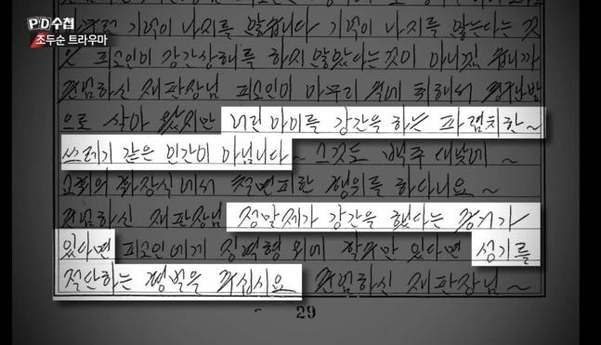 PD수첩
조두순 트라우마
기억이 나지를 않습니다 기억이 나지를 않는다는 것
피고인이 강간상해를 하지 않았다는 것이 아니겠습니까
존경하신 재판장님 피고인이 아무리 술에 취해서
으로 살아 왔지만 어린 아이를 강간을 하는 파렴치한~
쓰레기 같은 인간이 아닙니다~ 그것도 백주 대낮에~
교회의 화장실에서 철면피한 행위를 하다니요~
존경하신 재판장님 정말 제가 강간을 했다는 증거가
있다면 피고인에게 징역형 외에 할 수만 있다면 성기를
절단하는 형벌을 주십시요 존경하신 재판장님~
29